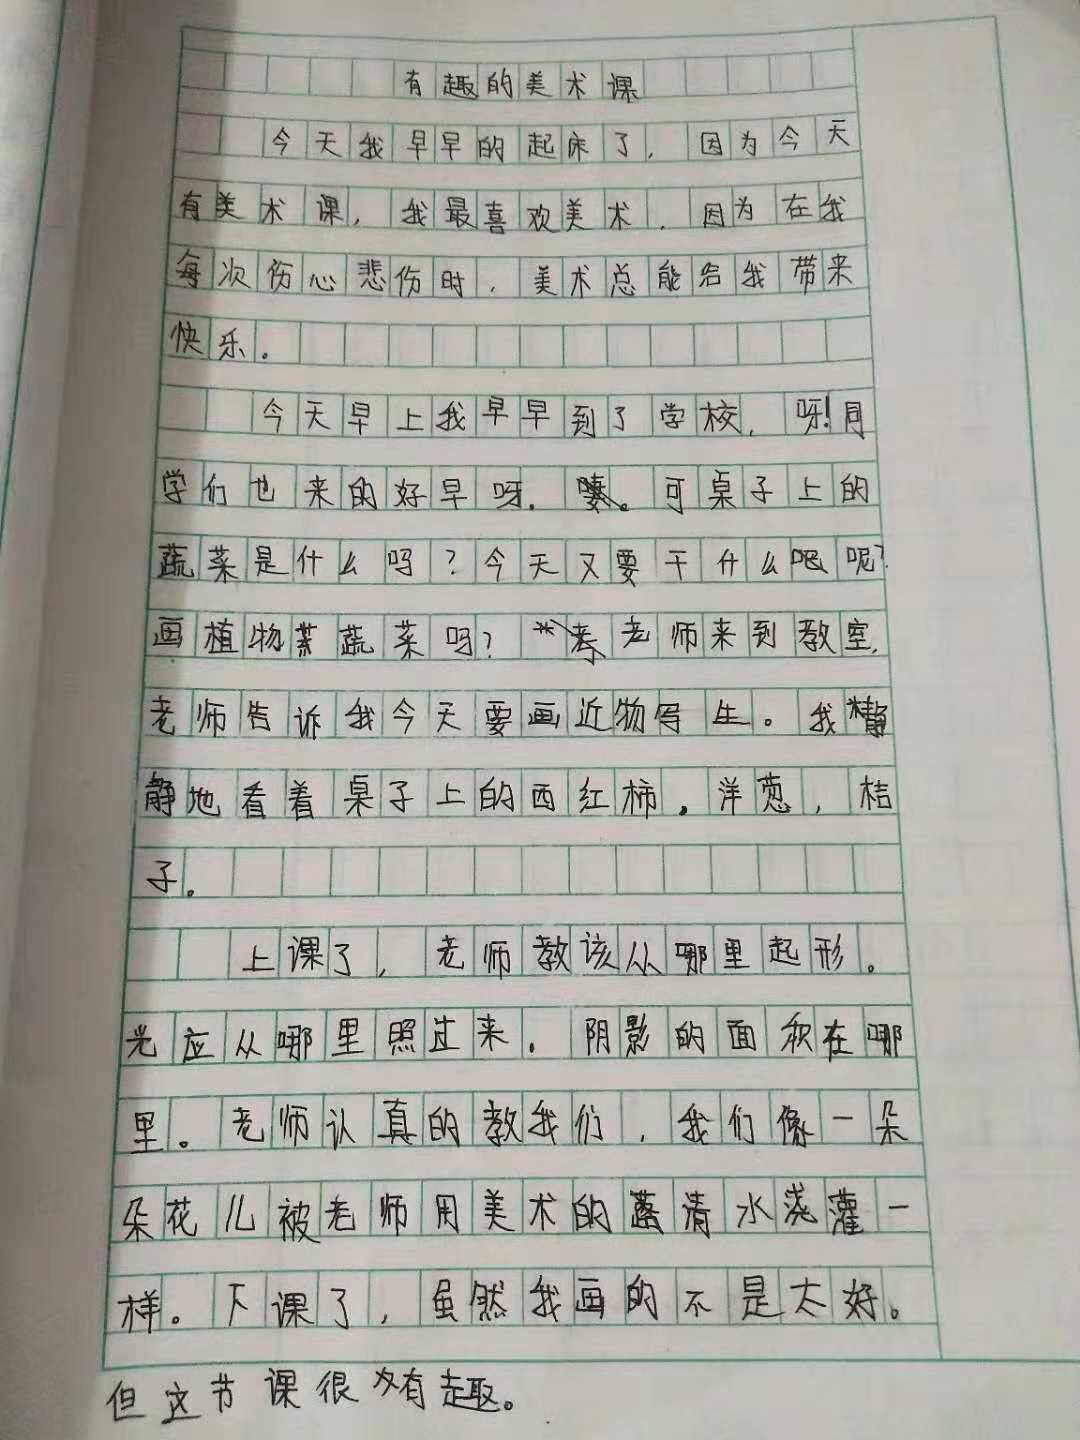 有趣的美术课
今天我早早的起床了，因为今天
有美术课，我最喜欢美术，因为在我
每次伤心悲伤时，美术总能给我带来
快乐。
今天早上我早早到了学校，呀！同
学们也来的好早呀。可桌子上的
蔬菜是什么吗？今天又要干什么呢？
画植物蔬菜吗？老师来到教室，
老师告诉我今天要画近物写生。我静
静地看着桌子上的西红柿，洋葱，桔
子。
上课了，老师教该从哪里起形。
光应从哪里照过来，阴影的面积在哪
里。老师认真的教我们，我们像一朵
朵花儿被老师用美术的清水浇灌一
样。下课了，虽然我画的不是太好。
但这节课很有趣。